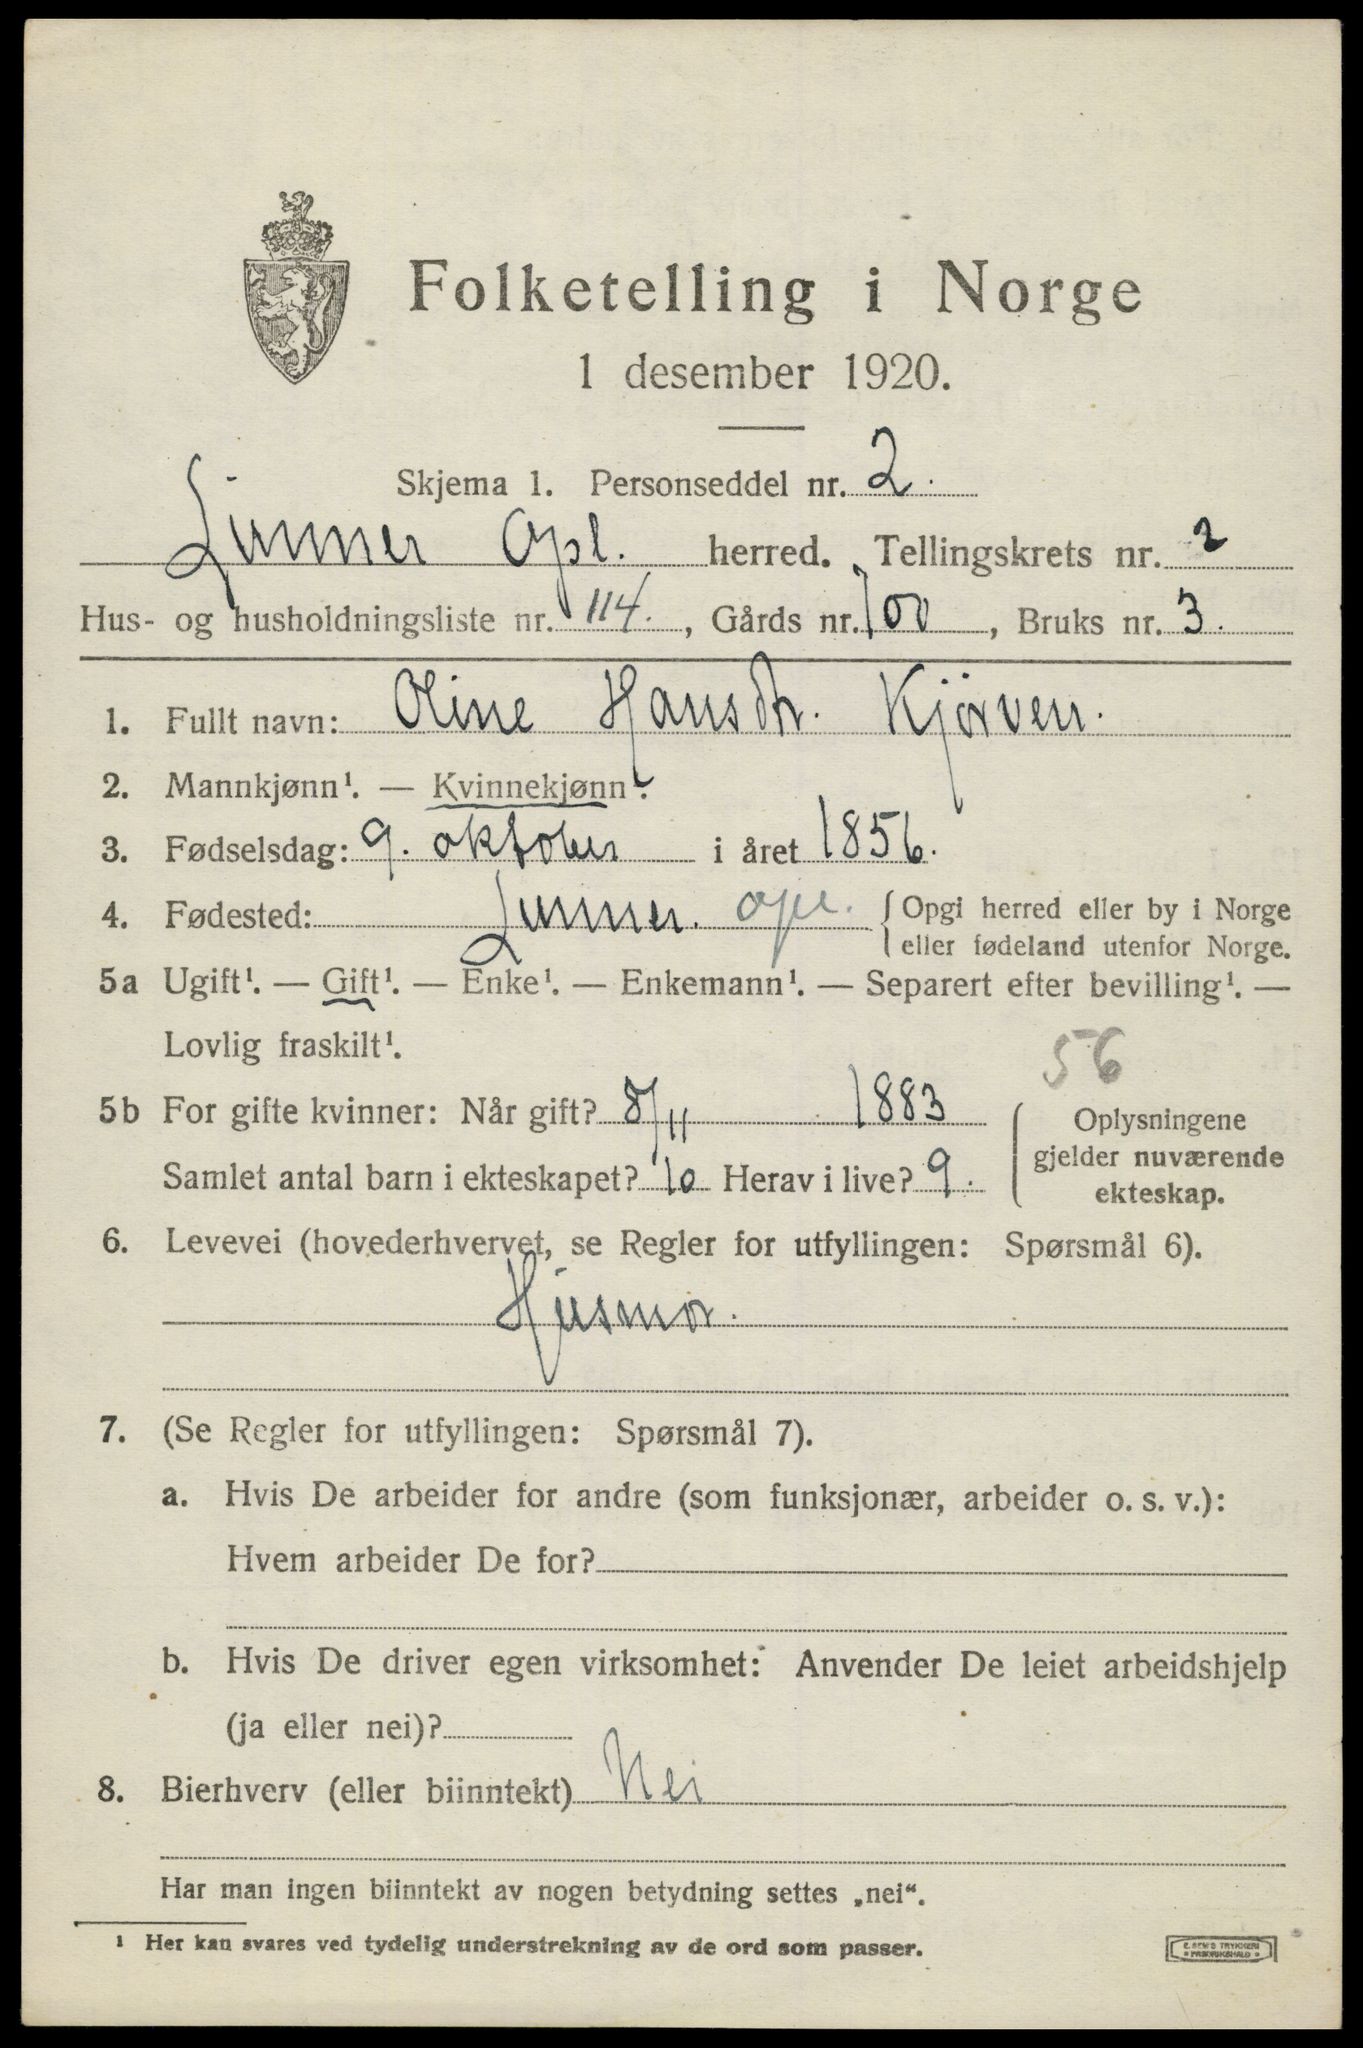 Folketelling i Norge
1 desember 1920.
Skjema 1. Personseddel nr. 2.
Lunner Opl. herred. Tellingskrets nr. 2
Hus- og husholdningsliste nr. 114., Gårds nr. 100, Bruks nr. 3.
1. Fullt navn: Oline Hansdtr. Kjörven.
2. Mannkjønn¹. — Kvinnekjønn¹.
3. Fødselsdag: 9. oktober i året 1856.
4. Fødested: Lunner. opl. { Opgi herred eller by i Norge
eller fødeland utenfor Norge.
5a Ugift¹. — Gift¹. — Enke¹. — Enkemann¹. — Separert efter bevilling¹. —
Lovlig fraskilt¹.
56
5b For gifte kvinner: Når gift? 8/11 1883
Samlet antal barn i ekteskapet? 10 Herav i live? 9.
Oplysningene
gjelder nuværende
ekteskap.
6. Levevei (hovederhvervet, se Regler for utfyllingen: Spørsmål 6).
Husmor.
7. (Se Regler for utfyllingen: Spørsmål 7).
a. Hvis De arbeider for andre (som funksjonær, arbeider o. s. v.):
Hvem arbeider De for?
b. Hvis De driver egen virksomhet: Anvender De leiet arbeidshjelp
(ja eller nei)?
8. Bierhverv (eller biinntekt) Nei
Har man ingen biinntekt av nogen betydning settes „nei“.
¹ Her kan svares ved tydelig understrekning av de ord som passer.